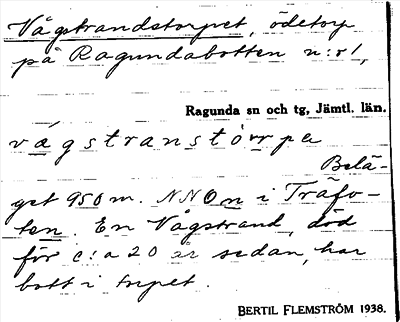 Vågstrandstorpet, ödetorp
på Ragundabotten n:r 1,
Ragunda sn och tg, Jämtl. län.
vågstranstòrpe
Belä-
get 950 m. NNO n i Träfo-
ten. En Vågstrand, död
för c:a 20 år sedan, har
bott i torpet.
BERTIL FLEMSTRÖM 1938.